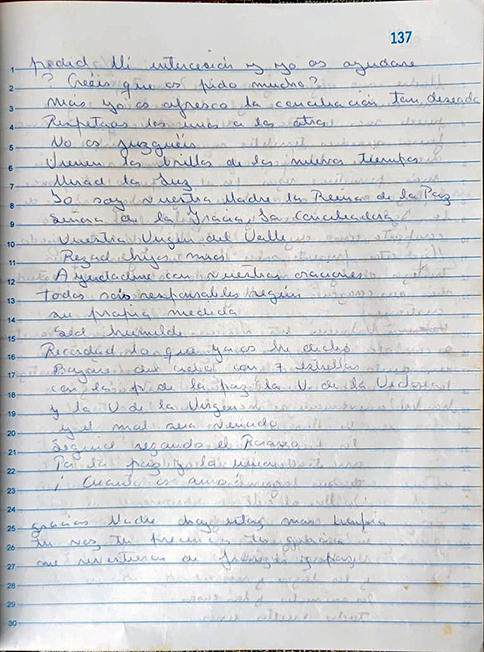 137
pedid Mi intercesión y yo os ayudaré
? Creéis que os pido mucho?
mas yo os ofresco la conciliación tan deseada
Respetaos los unos a los otros
No os juzguéis
Vienen los brillos de los nuevos tiempos
Mirad la Luz
Yo soy vuestra Madre la Reina de la Paz
Señora de la Gracia, La conciliadora
Vuestra Virgen del Valle
Rezad hijos mios
Ayudadme con vuestras oraciones
Todos sois responsables según
su propia medida
Sed humilde
Recordad lo que ya os he dicho
Bajaré del cielo con 7 estrellas
con la p de la paz la V. de la Victoria
y la V de la Virgen
y el mal sera vencido
Seguid rezando el Rosario
Por la paz y la union
¡ Cuanto os amo!
gracias Madre hoy estoy mas limpia
Tu voz tu presencia tu gracia
me revistieron de fuerza y paz